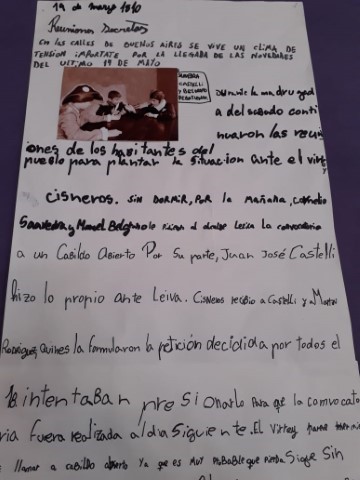 19 de mayo 1810
Reuniones Secretas
EN LAS CALLES DE BUENOS AIRES SE VIVE UN CLIMA DE
TENSION IMPORTATE POR LA LLEGADA DE LAS NOVEDADES
DEL ULTIMO 19 DE MAYO
CASTELLI
Y BELGRANO
Durante la madrugad
a del sabado conti
nuaron las reun
iones de los habitantes del
pueblo para plantar la situacion ante el virrey
cisneros. SIN DORMIR, POR la MAÑANA, Cornelio
Saavedra y Manuel Belgrano le al alcalde Leiva la convocatoria
a un Cabildo Abierto Por Su parte, Juan José Castelli
hizo lo propio ante Leiva. Cisneros recibio a Castelli y Martin
Rodriguez, Quienes la formularon la petición decidida por todos el
intentaban presionarlo Para que la convocato
ria fuera realizada al dia siguiente. El Virrey
llamar a cabildo abierto Ya que es MUY PROBABLE que Sin